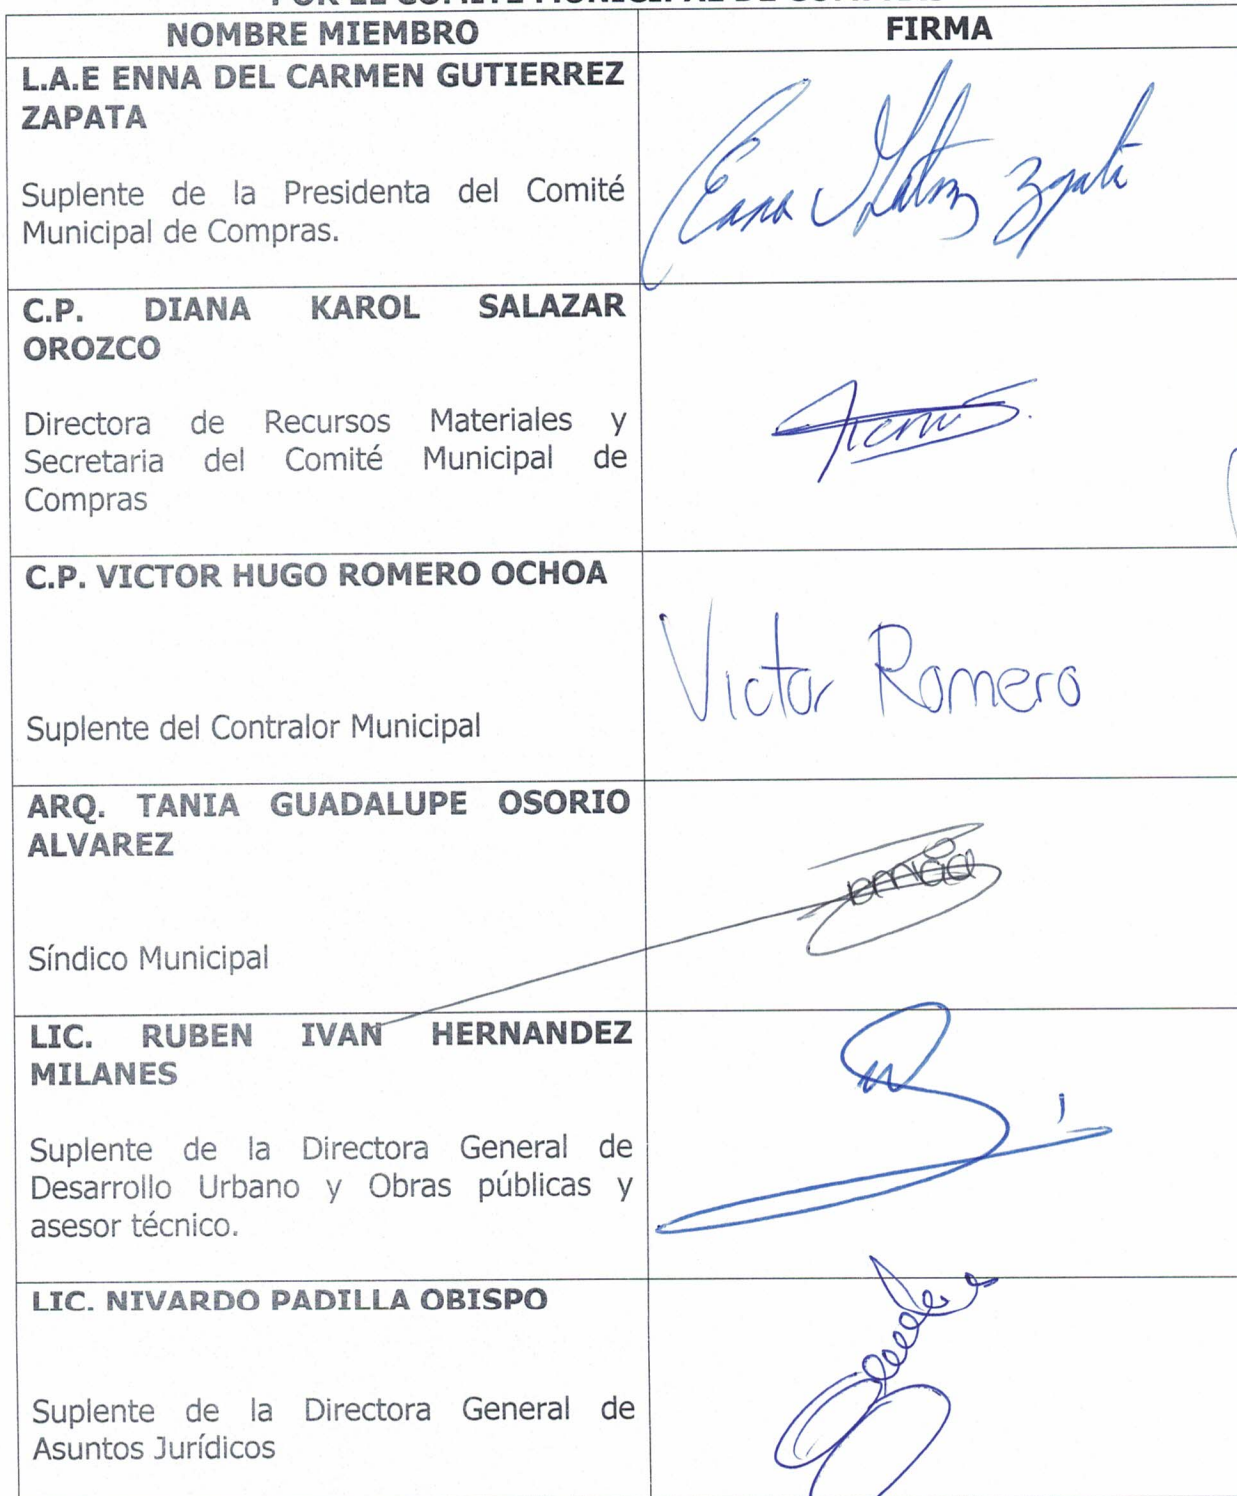 POR EL COMITÉ MUNICIPAL DE COMPRAS
NOMBRE MIEMBRO
FIRMA
L.A.E ENNA DEL CARMEN GUTIERREZ
ZAPATA
Suplente de la Presidenta del Comité
Municipal de Compras.
Enna Zapata
C.P. DIANA KAROL SALAZAR
OROZCO
Directora de Recursos Materiales y
Secretaria del Comité Municipal de
Compras
C.P. VICTOR HUGO ROMERO OCHOA
Suplente del Contralor Municipal
Victor Romero
ARQ. TANIA GUADALUPE OSORIO
ALVAREZ
Síndico Municipal
LIC. RUBEN IVAN HERNANDEZ
MILANES
Suplente de la Directora General de
Desarrollo Urbano y Obras públicas y
asesor técnico.
LIC. NIVARDO PADILLA OBISPO
Suplente de la Directora General de
Asuntos Jurídicos